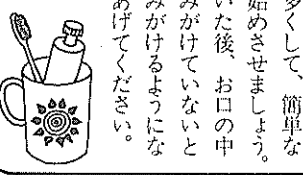 多くして、簡単な
始めさせましょう。
いた後、お口の中
みがけていないと
みがけるようにな
あげてください。